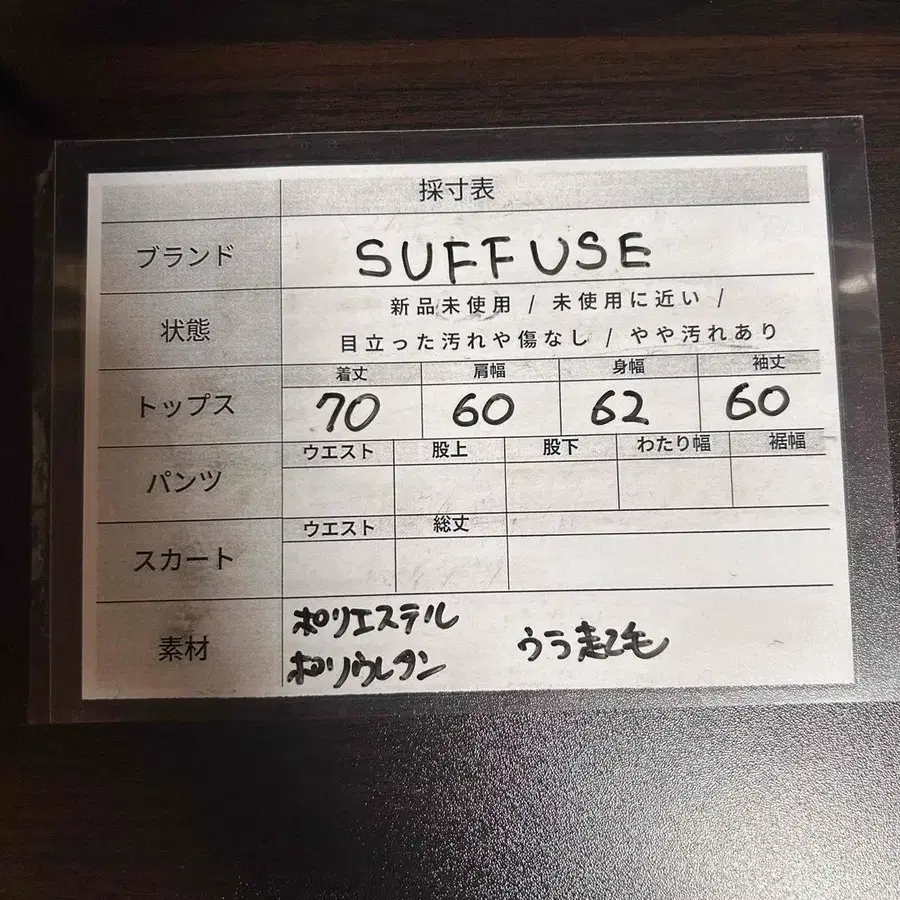 採寸表
ブランド SUFFUSE
状態 新品未使用 / 未使用に近い /
目立った汚れや傷なし / やや汚れあり
着丈 肩幅 身幅 袖丈
トップス 70 60 62 60
ウエスト 股上 股下 わたり幅 裾幅
パンツ
ウエスト 総丈
スカート
素材 ポリエステル
ポリウレタン
ウラ起毛